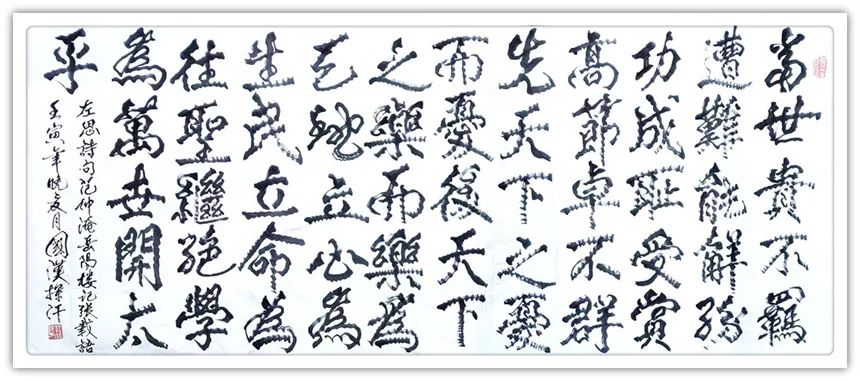 當世貴不羈
遭難能解紛
功成耻受賞
高節卓不群
先天下之憂
而憂後天下
之樂而樂為
天地立心為
生民立命為
往聖繼絕學
為萬世開太
平
左思詩句范仲淹岳陽樓記張載語
壬寅年晚夏月國漢揮汗